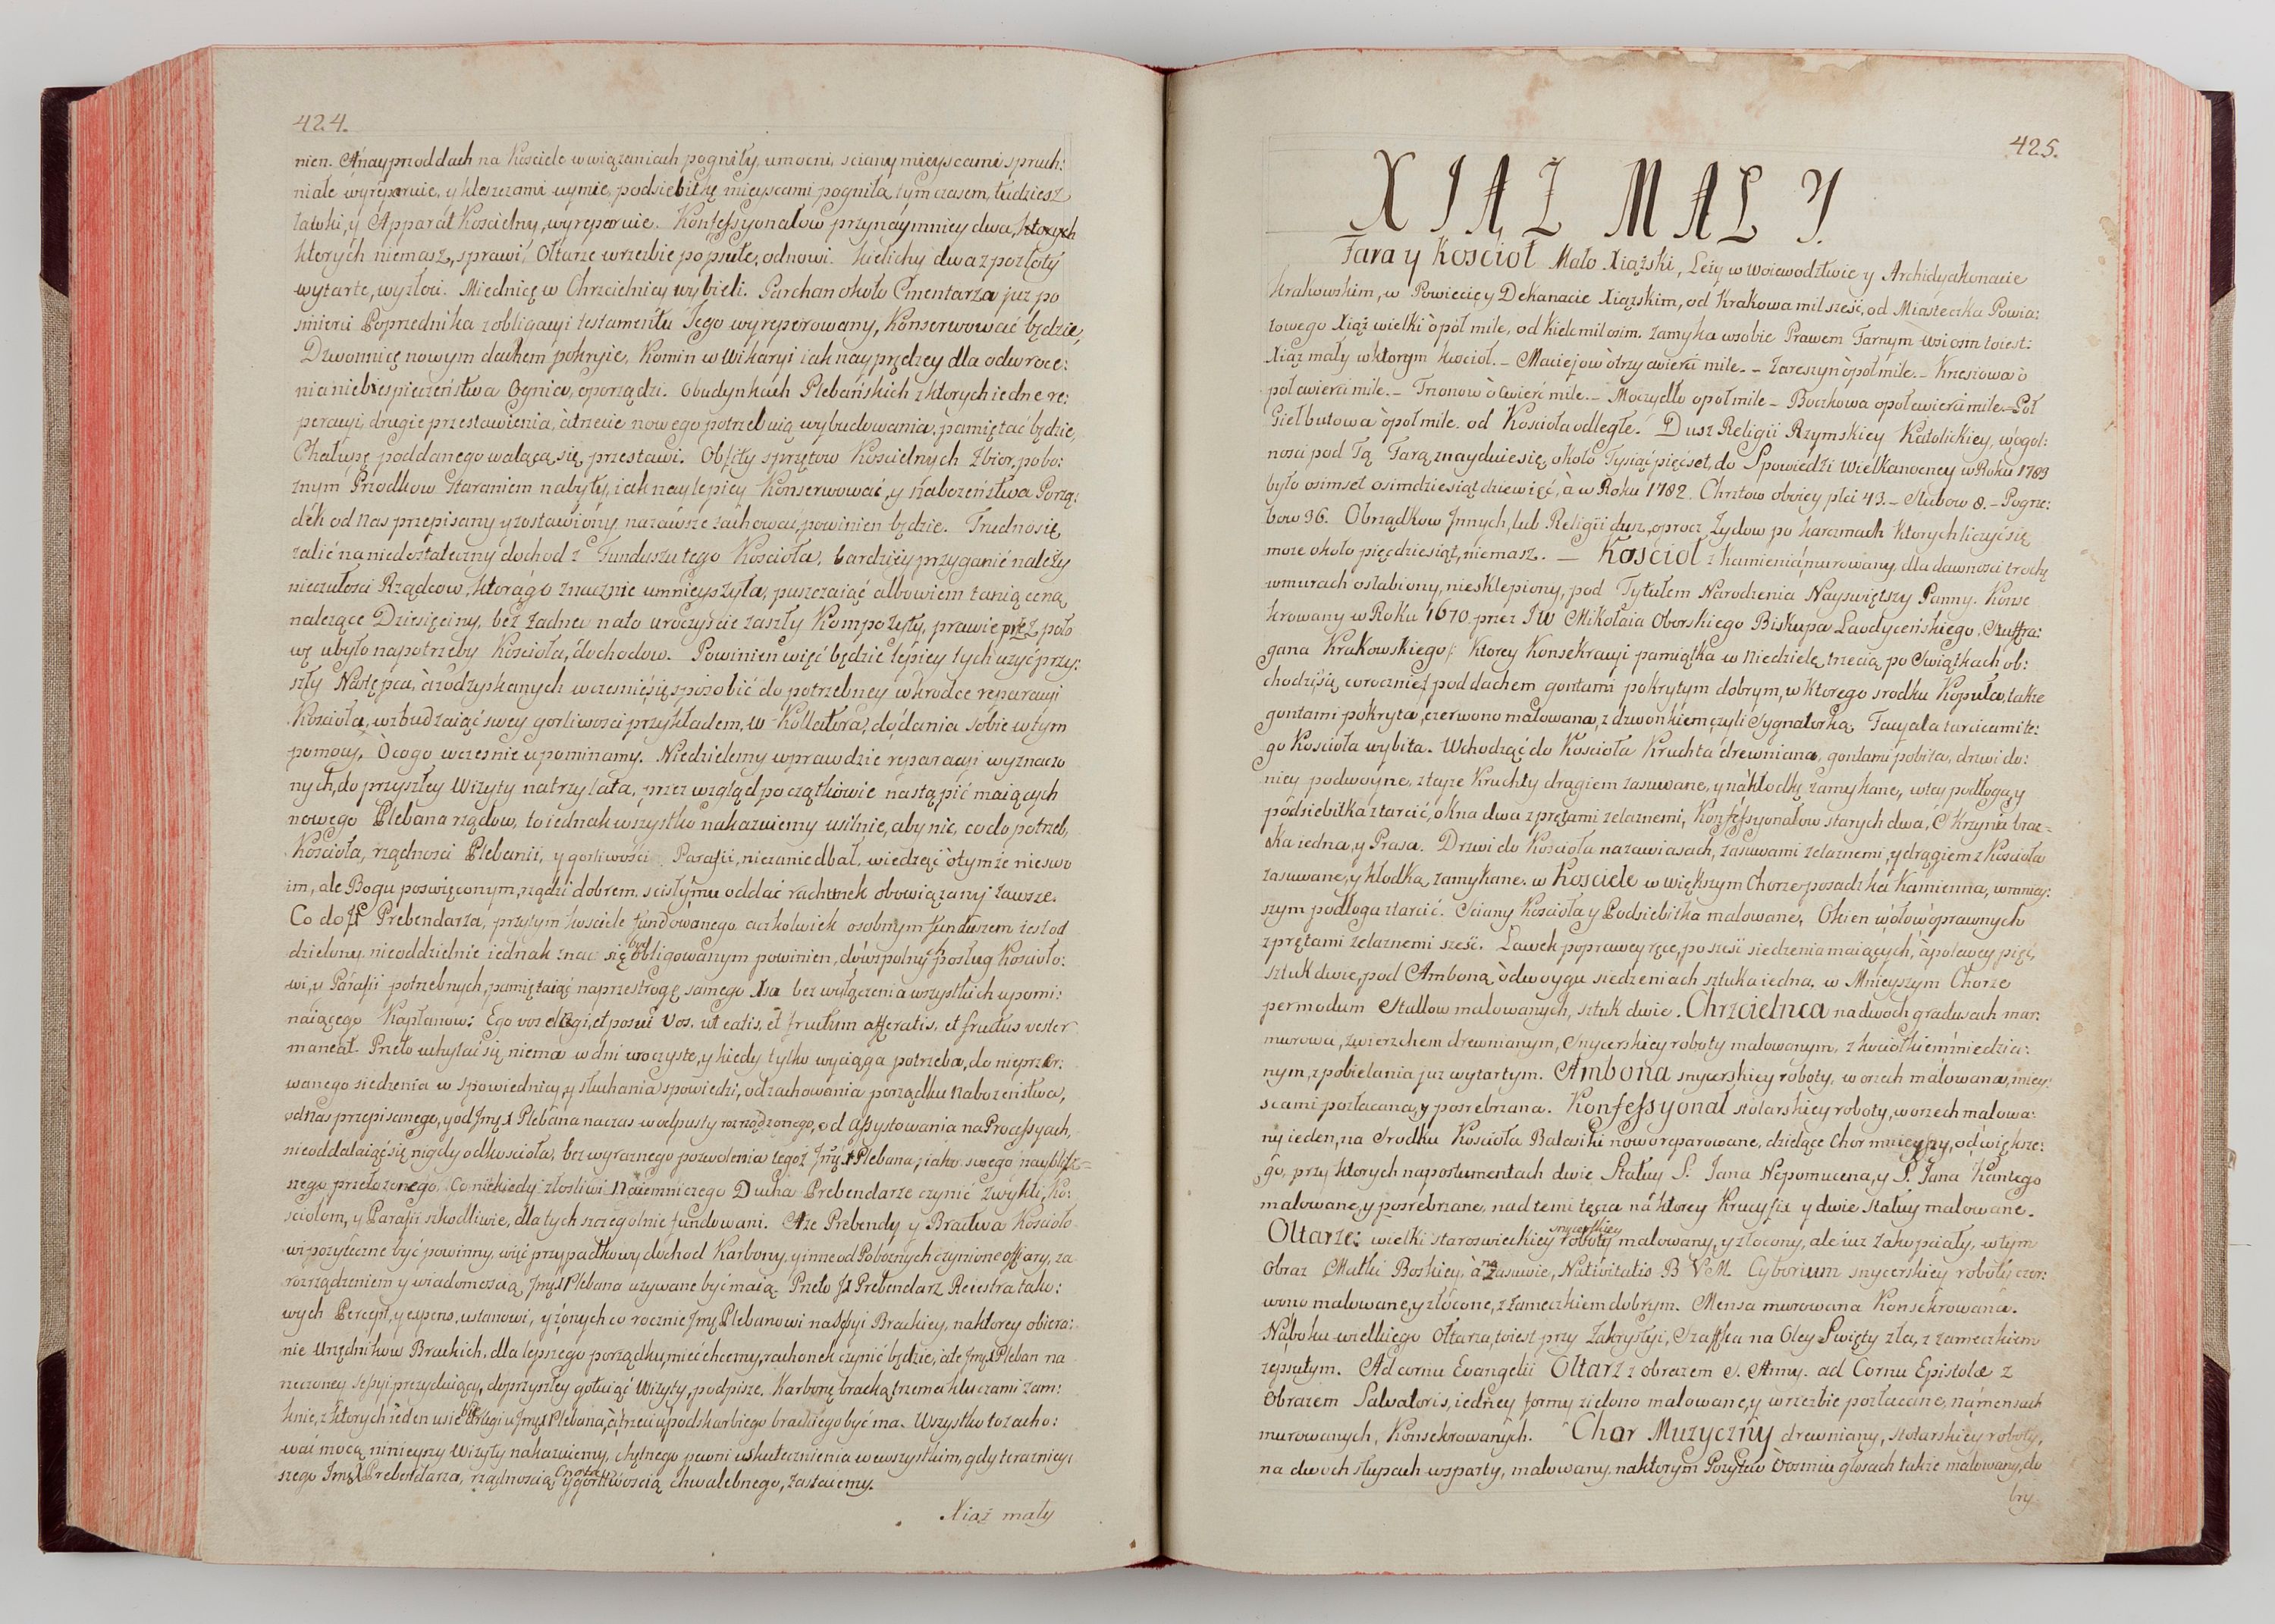 424.
nien. A náyprzod dach na Kościele w wiązaniach pogniły, umocni, sciany mieyscami spruch:
niałe wyreperuie, y kleszczami uymie, podsiebitkę mieyscami pogniłą tym czasem, tudziesz
Ławki, y Apparat Koscielny, wyreperuie. Konfessyonałow przynaymniey dwa, ktorych
ktorych niemasz, sprawi, Ołtarze w rzezbie popsute, odnowi. Kielichy dwa z pozłoty
wytarte, wyzłoci. Miednicę w Chrzcielnicy wybieli. Parchan około Cmentarza juz po
smierci Poprzednika z obligacyi testamentu Jego wyreperowany, Konserwować będzie,
Dzwonnicę nowym dachem pokryie, Komin w Wikaryi iak nayprędzey dla odwroce:
nia niebespieczeństwa Ognia, oporządzi. O budynkach Plebańskich z ktorych iedne re:
peracyi, drugie przestawienia, à trzecie nowego potrzebuią wybudowania, pamiętać będzie,
Chałupę poddanego walącą się, przestawi. Obfity sprzętow Koscielnych Zbior, pobo:
znym Przodkow Staraniem nabyty, iak naylepiey Konserwować, y Nabozeństwa Porzą:
dek od Nas przepisany y zostawiony, nazawsze zachować, powinien będzie. Trudno się
zalić na niedostateczny dochod z Funduszu tego Kościoła, bardziey przyganić należy
nieczułosci Rządcow, ktora go znacznie umnieyszyła, puszczaiąć albowiem tanią ceną
nalezące Dziesięciny, bez żadney na to uroczyście zaszły Kompozyty, prawie przez poło
wę ubyło na potrzeby Kościoła, dochodow. Powinien więć będzie lepiey tych użyć przy:
szły Następca, à z odzyskanych wczesnie, się sposobić do potrzebney wkrodce reparacyi
Kościoła, wzbudzaiąć swey gorliwosci przykładem, W Kollatora, do dania sobie w tym
pomocy, O co go wczesnie upominamy. Niedzielemy wprawdzie reparacyi wyznaczo
nych, do przyszłey Wizyty na trzy lata, przez wzgląd początkowie nastąpić maiących
nowego Plebana rządow, to iednak wszystko nakazuiemy usilnie, aby nic, co do potrzeb,
Kościoła, rządnosci Plebanii, y gorliwości Parafii, niezaniedbał, wiedzęć o tym ze nieswo
im, ale Bogu poswięconym, rządzi dobrem, scisły mu oddać rachunek obowiązany zawsze.
Co do JX Prebendarza, przy tym kosciele fundowanego, aczkolwiek osobnym funduszem iest od
dzielony, nieoddzielnie iednak znać się być obligowanym powinien, do wspolny posług Kościoło:
wi, y Parafii potrzebnych, pamiętaiąć na przestrogę samego Xsa bez wyłączenia wszystkich upomi:
naiącego Kapłanow: Ego vos elegi, et posui vos, ut eatis, et fructum afferatis, et fructus vester
maneat. Przeto uchylać się niema w dni uroczyste, y kiedy tylko wyciąga potrzeba, do nieprzer:
wanego siedzenia w spowiednicy, y słuchania spowiedzi, od zachowania porządku Nabozeństwa,
od Nas przepisanego, y od Jmę X Plebana na czas w odpusty rozrządzonego, od assystowania na Processyach,
nieoddalaiąć się nigdy od kościoła, bez wyraznego pozwolenia tegoż Jmę X Plebana, iako swego naybliż=
szego przełozonego, Co niekiedy złosliwi Naiemniczego Ducha Prebendarze czynić zwykli, Ko:
sciołom, y Parafii szkodliwie, dla tych szczegolnie fundowani. A ze Prebendy y Bractwa Kościoło
wi pozyteczne być powinny, więć przypadkowy dochod Karbony, y inne od Poboznych czynione offiary, za
rozrządzeniem y wiadomoscią Jmę X Plebana uzywane być maią. Przeto JX Prebendarz Reiestra tako:
wych Percept, y expens, ustanowi, y z onych co rocznie Jmę Plebanowi na Sessyi Brackiey, na ktorey obiera:
nie Urzędnikow Brackich, dla lepszego porządku, mieć chcemy, rachonek czynić będzie, à te Jmę X Pleban na
rzeczoney Sessyi prezyduiący, do przyszłey gotuiąć Wizyty, podpisze. Karbonę bracką trzema kluczami zam:
knie, z ktorych ieden u siebie, drugi u Jmę X Plebana, à trzeci u podskarbiego brackiego być ma. Wszystko to zacho:
wać mocą ninieyszy Wizyty nakazuiemy, chętnego pewni uskutecznienia we wszystkim, gdy terazniey:
szego Jmę X Prebendarza, rządnoscią Cnotą y gorliwoscią chwalebnego, zastaiemy.
Xiąż mały
425.
XIĄŻ MAŁY.
Fara y Kościoł Mało Xiąski, Lezy w Woiewodztwie y Archidyakonacie
Krakowskim, w Powiecie y Dekanacie Xiązskim, od Krakowa mil sześć, od Miasteczka Powia:
towego Xiąż wielki o poł mile, od Kielc mil osim. Zamyka w sobie Prawem Farnym wsiosm to iest:
Xiąż mały w ktorym kościoł. – Macieiow o trzy cwierci mile. – Zareszyn o poł mile. – Krzesiowa o
poł cwierci mile. – Trzonow o cwierć mile. – Moczydło o poł mile – Boczkowa o poł cwierci mile. – Poł
Giełbutowa o poł mile. od Kościoła odległe. Dusz Religii Rzymskiey Katolickiey, w ogol:
nosci pod Tą Farą znayduie się około Tysiąć pięćset, do Spowiedzi Wielkanocney w Roku 1783
było osimset osimdziesiąt dziewięć, à w Roku 1782. Chrztow oboiey płci 43. – Slubow 8. – Pogrze:
bow 36. Obrządkow Jnnych, lub Religii dusz, oprocz Zydow po karczmach ktorych liczyć się
moze około pięćdziesiąt, niemasz. – Kościoł z kamienia, murowany, dla dawnosci trochę
w murach osłabiony, niesklepiony, pod Tytułem Narodzenia Nayswiętszy Panny. Konse
krowany w Roku 1670 przez JW Mikołaia Oborskiego Biskupa Laodyceńskiego, Suffra:
gana Krakowskiego, Ktorey Konsekracyi pamiątka w Niedzielę trzecią po Swiątkach ob:
chodzi się corocznie, pod dachem gontami pokrytym dobrym, w ktorego srodku Kopuła, takze
gontami pokryta, czerwono malowana, z dzwonkiem czyli Sygnaturką, Facyata tarcicami te:
go Kościoła wybita. Wchodząć do Kościoła Kruchta drewniana, gontami pobita, drzwi do:
niey podwoyne, z tayze Kruchty drągiem zasuwane, y na kłodkę zamykane, w tey podłoga, y
podsiebitka z tarcić, okna dwa z prętami zelaznemi, Konfessyonałow starych dwa, Skrzynia brac=
ka iedna, y Prasa. Drzwi do Kościoła na zawiasach, zasuwami zelaznemi, y drągiem z Kościoła
zasuwane, y kłodką zamykane. w Kościele w większym Chorze posadzka Kamienna, w mniey:
szym podłoga z tarcić. Sciany Kościoła y Podsiebitka malowane, Okien w ołow oprawnych
z prętami zelaznemi sześć. Ławek po prawey ręce, po sześć siedzenia maiących, à po lewey pięć,
sztuk dwie, pod Amboną o dwoygu siedzeniach sztuka iedna. w Mnieyszym Chorze
per modum Stallow malowanych, sztuk dwie. Chrzcielnca na dwoch gradusach mar:
murowa, z wierzchem drewnianym, snycerskiey roboty malowanym, z kociołkiem miedzia:
nym, z pobielania juz wytartym. Ambona snycerskiey roboty, w orzech malowana, miey:
scami pozłacana, y posrebrzana. Konfessyonał stolarskiey roboty, w orzech malowa:
ny ieden, na Srodku Kościoła Balasiki nowo reparowane, dzielące Chor mnieyszy, od większe:
go, przy ktorych na postumentach dwie Statuy S. Jana Nepomucena, y S. Jana Kantego
malowane, y posrebrzane, nad temi tęcza na ktorey Krucyfix y dwie statuy malowane.
Ołtarze: wielki staroswieckiey snycerskiey roboty malowany, y złocony, ale iuz zakopciały, w tym
obraz Matki Boskiey, à na zasuwie, Nativitatis B V M. Cyborium snycerskiey roboty czer:
wono malowane, y złocone, z zameczkiem dobrym. Mensa murowana Konsekrowana.
Na boku wielkiego Ołtarza, to iest przy Zakrystyi, Szafka na Oley Swięty zła, z zameczkiem
zepsutym. Ad cornu Evangelii Ołtarz z obrazem S. Anny. ad Cornu Epistolæ z
Obrazem Salvatoris, iedney formy zielono malowane, y w rzezbie pozłacane, na mensach
murowanych, Konsekrowanych. Chor Muzyczny drewniany, stolarskiey roboty,
na dwoch słupach wsparty, malowany, na ktorym Pozytew o osmiu głosach takze malowany, do
bry